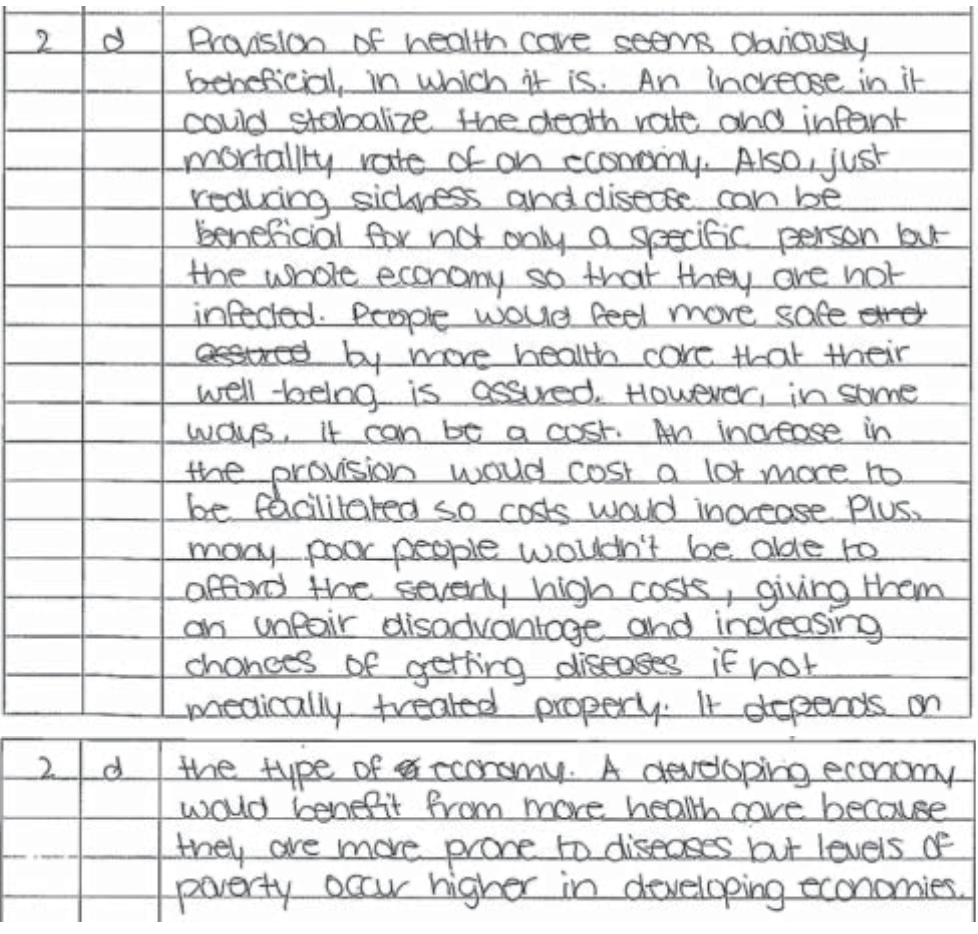 2 d Provision of health care seems obviously
beneficial, in which it is. An increase in it
could stabalize the death rate and infant
mortality rate of an economy. Also, just
reducing sickness and disease can be
beneficial for not only a specific person but
the whole economy so that they are not
infected. People would feel more safe and
assured by more health care that their
well-being is assured. However, in some
ways, it can be a cost. An increase in
the provision would cost a lot more to
be facilitated so costs would increase. Plus,
many poor people wouldn't be able to
afford the severly high costs, giving them
an unfair disadvantage and increasing
chances of getting diseases if not
medically treated properly. It depends on
2 d the type of economy. A developing economy
would benefit from more health care because
they are more prone to diseases but levels of
poverty occur higher in developing economies.